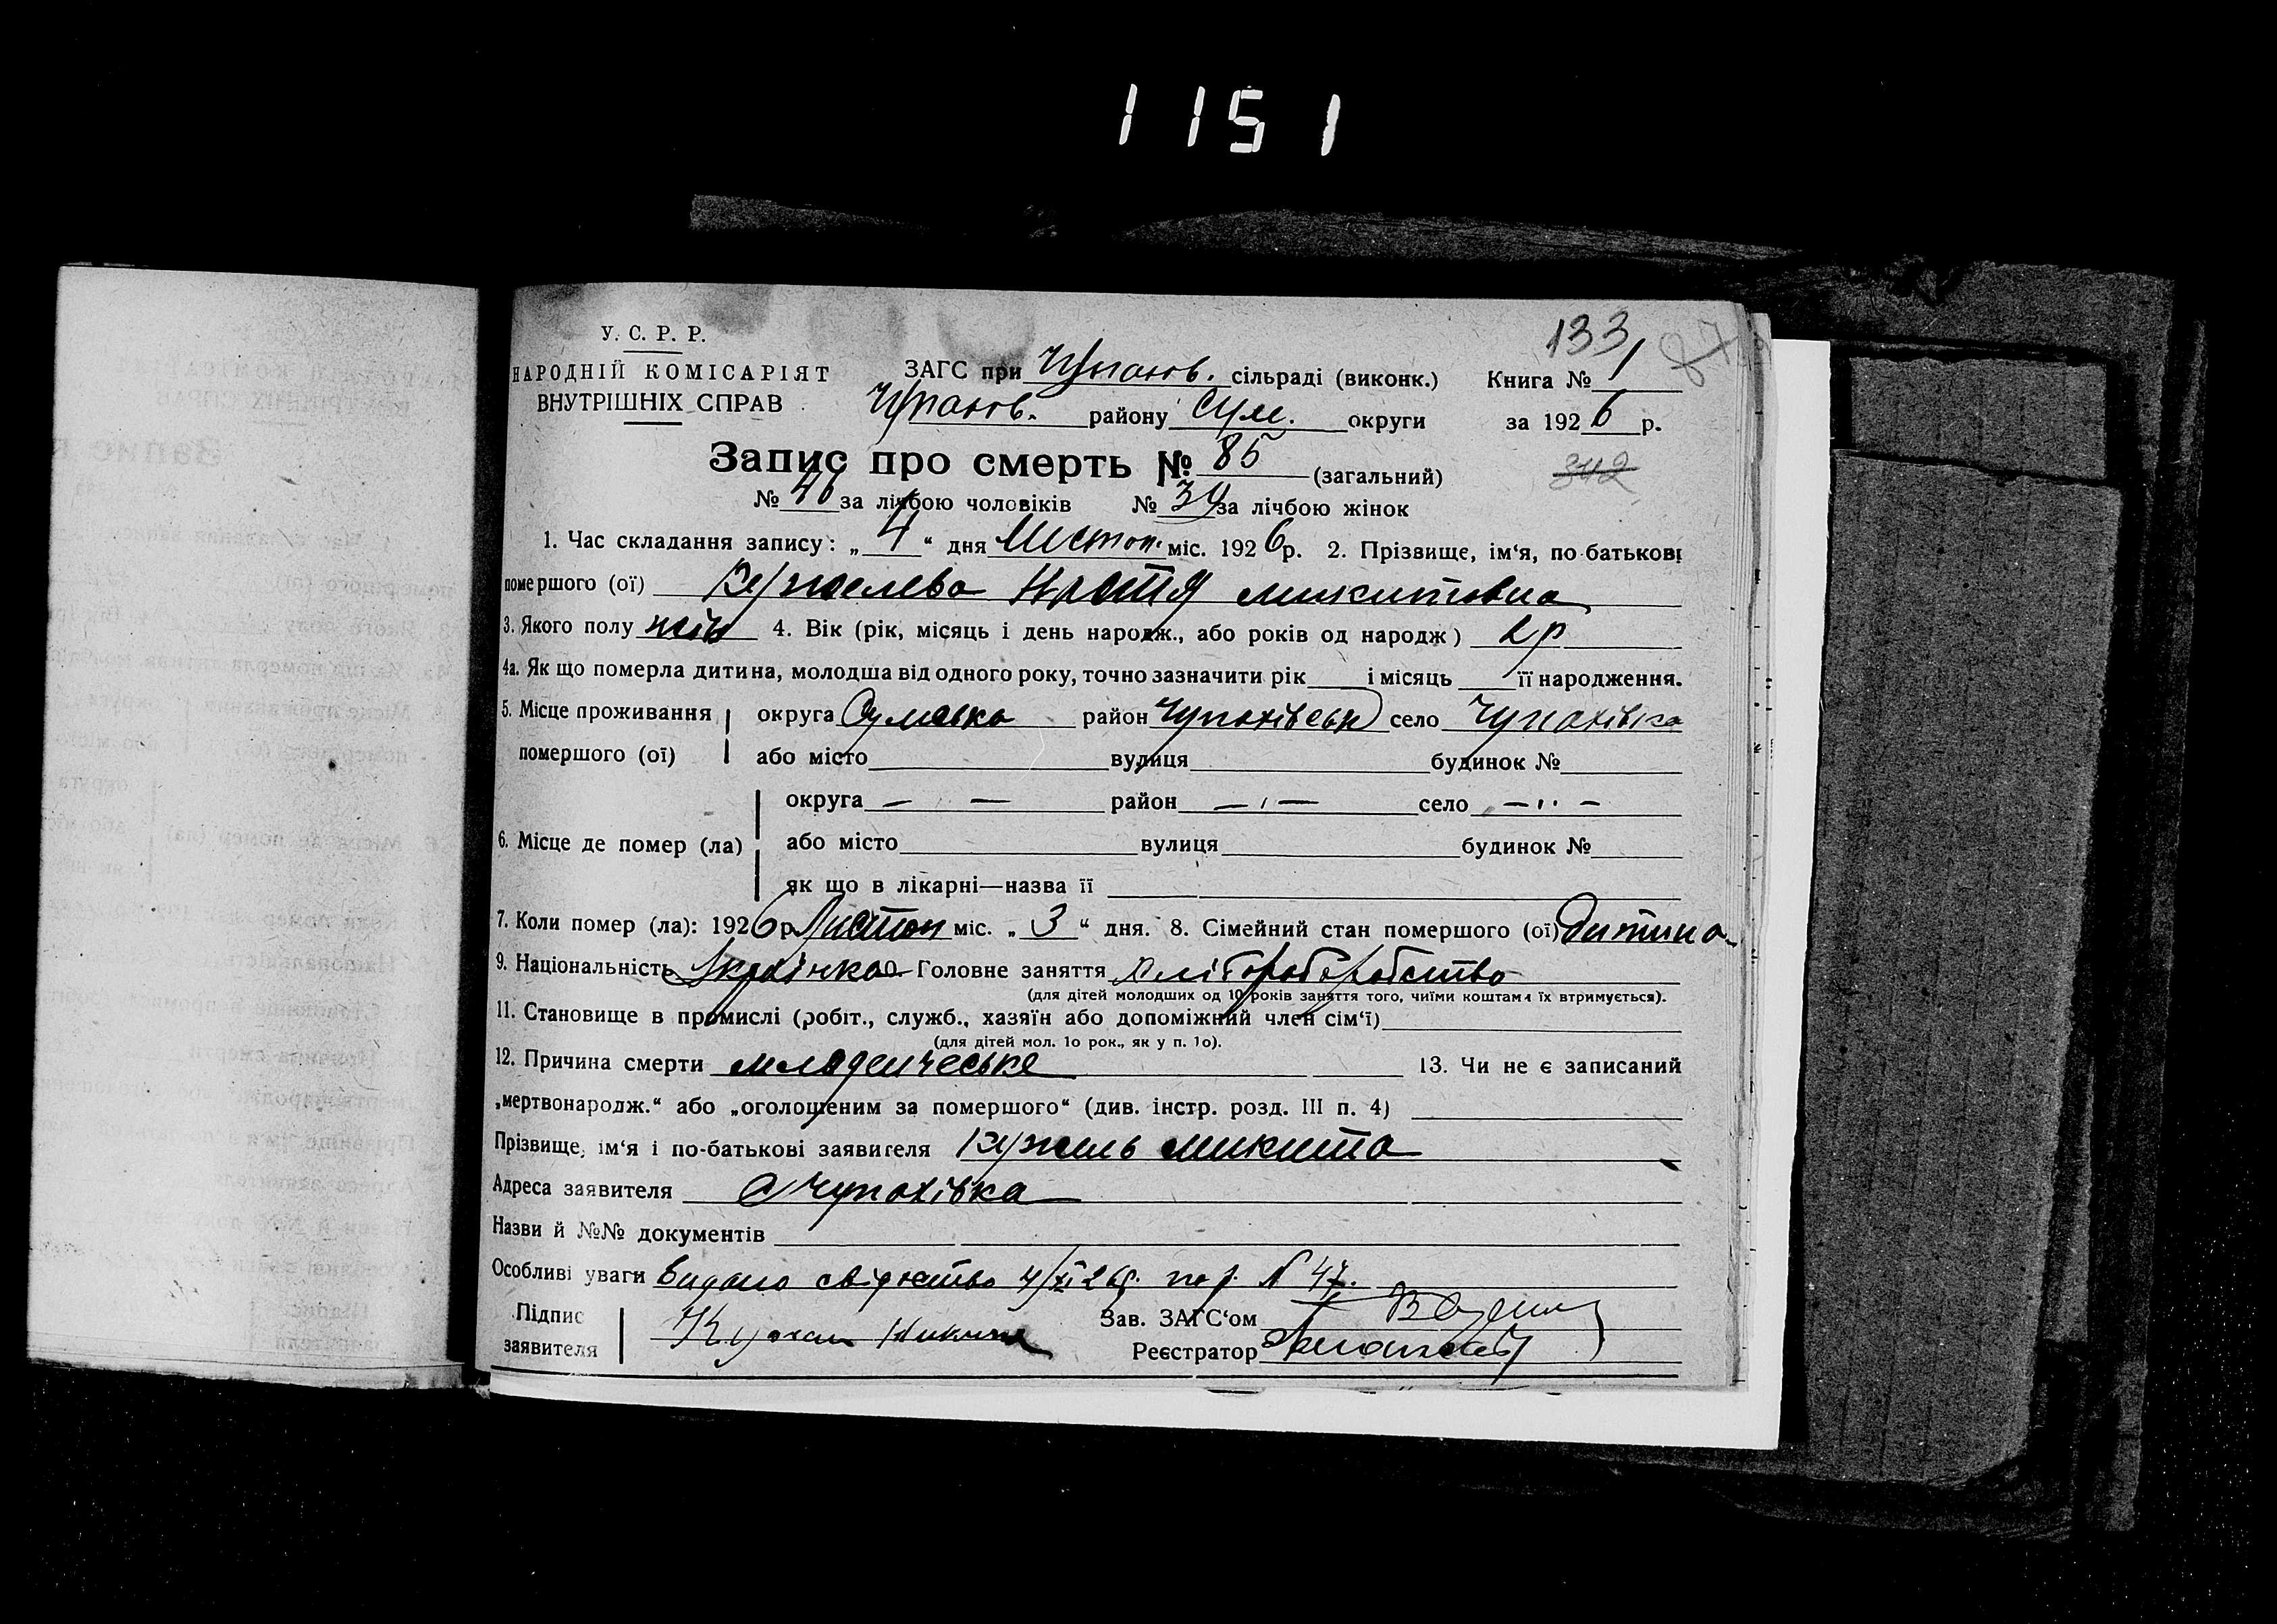 1151
133
У. С. Р. Р.
НАРОДНІЙ КОМІСАРІЯТ
ВНУТРІШНІХ СПРАВ
ЗАГС при Чупахів. сільраді (виконк.) Книга № 1
Чупахів. району Сум. округи за 1926 р.
Запис про смерть № 85 (загальний)
342
№ 46 за лічбою чоловіків № 39 за лічбою жінок
1. Час складання запису: „ 4 “ дня Листоп. міс. 1926 р. 2. Прізвище, ім‘я, по-батькові
помершого (ої) Кужелева Настя Микитовна
3. Якого полу жін 4. Вік (рік, місяць і день народж., або років од народж) 2 р
4а. Як що померла дитина, молодша від одного року, точно зазначити рік і місяць її народження.
5. Місце проживання округа Сумська район Чупахівськ село Чупахівка
помершого (ої) або місто вулиця будинок №
округа — — район — „ — село — „ —
6. Місце де помер (ла) або місто вулиця будинок №
як що в лікарні—назва її
7. Коли помер (ла): 1926 р Листоп міс. „ 3 “ дня. 8. Сімейний стан помершого (ої) Дитина
9. Національність Українка 10. Головне заняття хліборобство
(для дітей молодших од 10 років заняття того, чиїми коштами їх втримується).
11. Становище в промислі (робіт., служб., хазяїн або допоміжний член сім‘ї)
(для дітей мол. 1о рок., як у п. 1о).
12. Причина смерти младенческе 13. Чи не є записаний
„мертвонародж.“ або „оголошеним за помершого“ (див. інстр. розд. III п. 4)
Прізвище, ім‘я і по-батькові заявителя Кужель Микита
Адреса заявителя с Чупахівка
Назви й №№ документів
Особливі уваги Видано свідоцтво 4/XI 26р. по р. N 47.
Підпис Зав. ЗАГС‘ом
заявителя Реєстратор